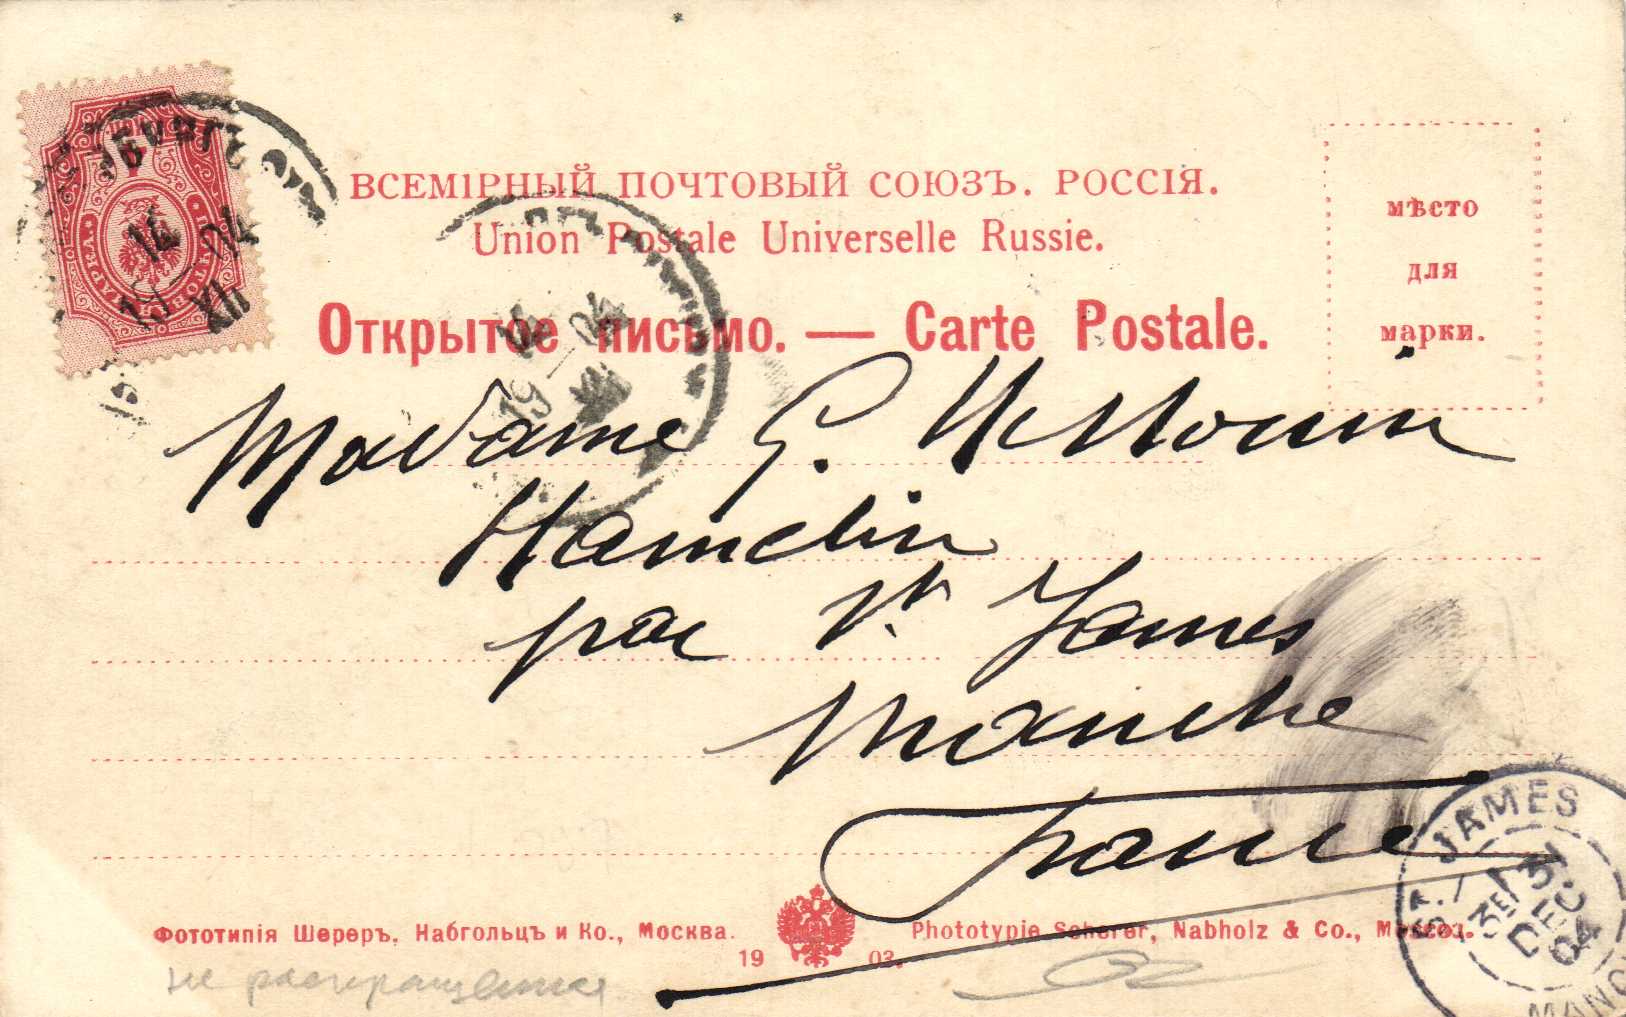 ВСЕМІРНЫЙ ПОЧТОВЫЙ СОЮЗЪ. РОССІЯ.
Union Postale Universelle Russie.
Открытое письмо. — Carte Postale.
мѣсто
для
марки.
14
19 04
XII
19 04
Madame G.
Hamelin
par St James
Manche
France
ST. JAMES
31
DEC
04
Фототипія Шереръ, Набгольцъ и Ко., Москва.
Phototypie Scherer, Nabholz & Co., Moscou.
19 03.